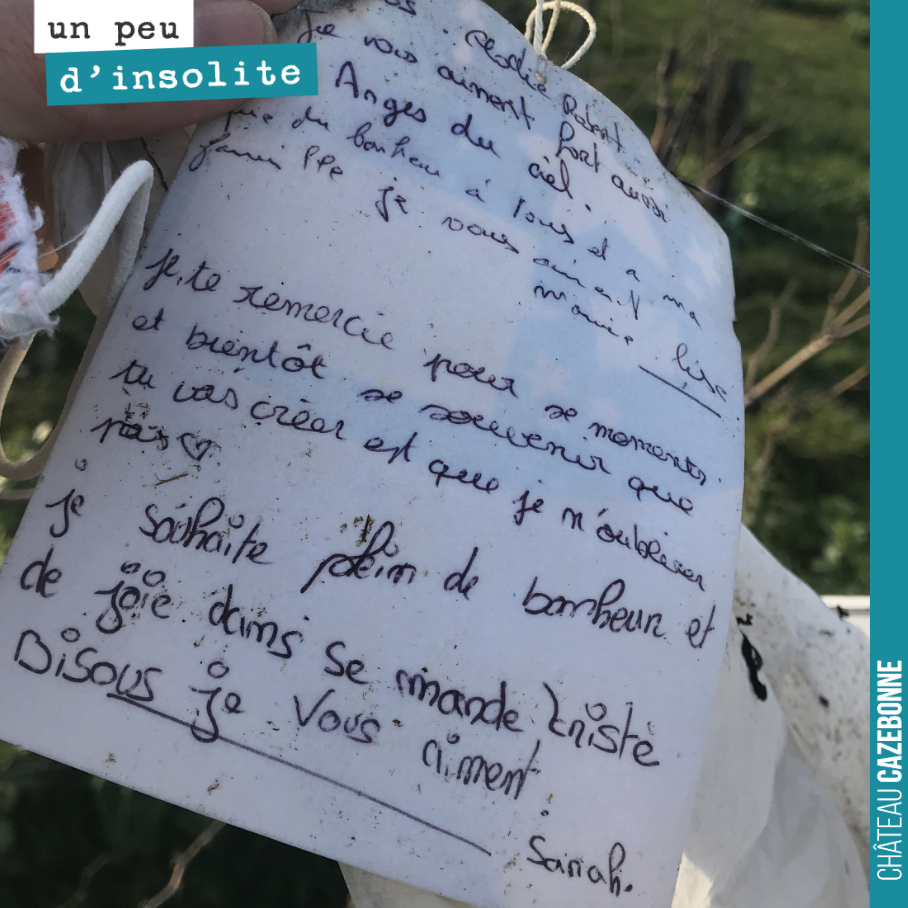 un peu
d'insolite
Elodie Robert
je vous aiment fort aussi
Anges du ciel.
du bonheur à tous et a ma
je vous aiment
Lise
je, te remercie pour se moments.
et bientôt se souvenir que
tu vas créer est que je n'oublierer
pas ♡
je souhaite plein de bonheur et
de joie dans se monde triste
Bisous je vous aiment.
Sarah.
CHÂTEAU CAZEBONNE